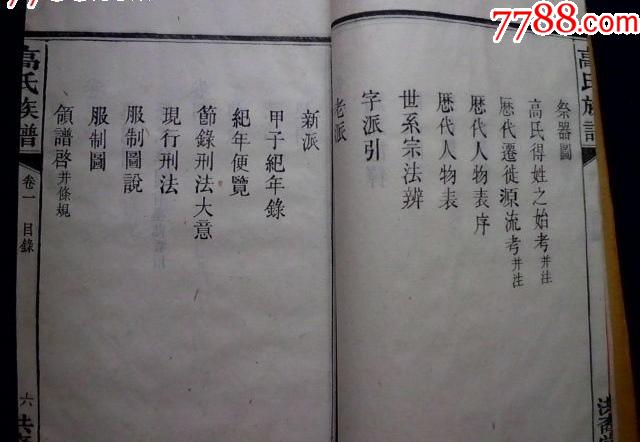 7788.com
高氏族譜
祭器圖
高氏得姓之始考并注
歷代遷徙源流考并注
歷代人物表序
歷代人物表
世系宗法辨
字派引
老派
新派
甲子紀年錄
紀年便覽
節錄刑法大意
現行刑法
服制圖說
服制圖
領譜啓并條規
高氏族譜
卷一
目錄
六